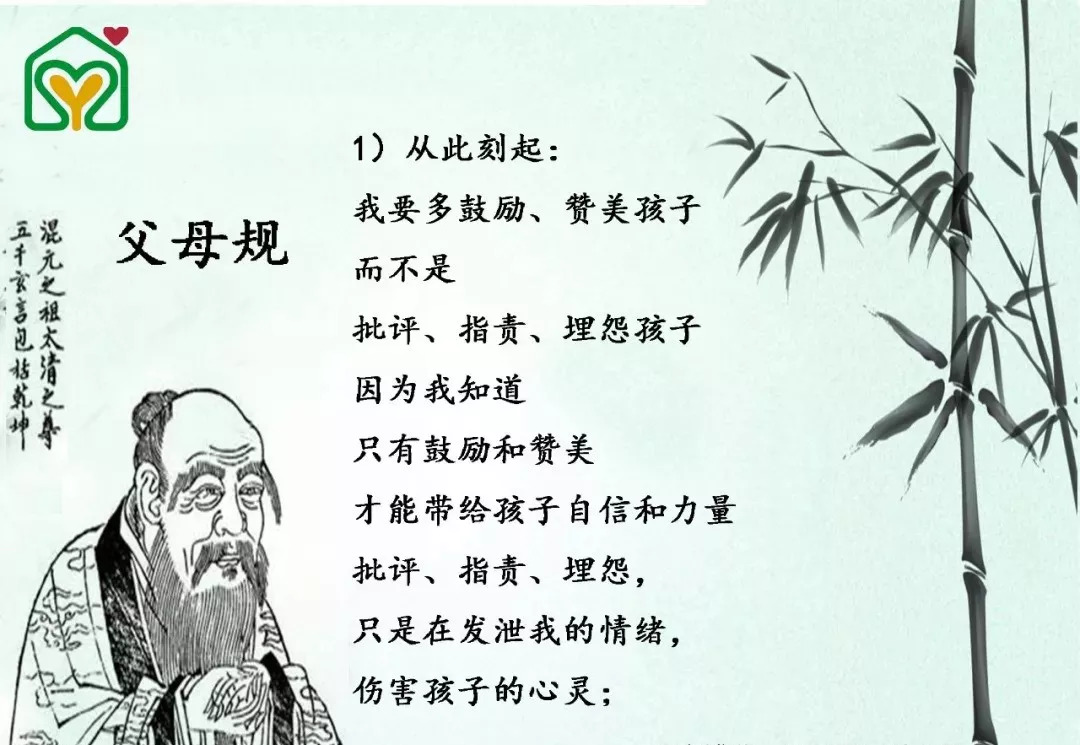 父母规
混元之祖太清之尊
五千玄言包括乾坤
1）从此刻起：
我要多鼓励、赞美孩子
而不是
批评、指责、埋怨孩子
因为我知道
只有鼓励和赞美
才能带给孩子自信和力量
批评、指责、埋怨，
只是在发泄我的情绪，
伤害孩子的心灵；